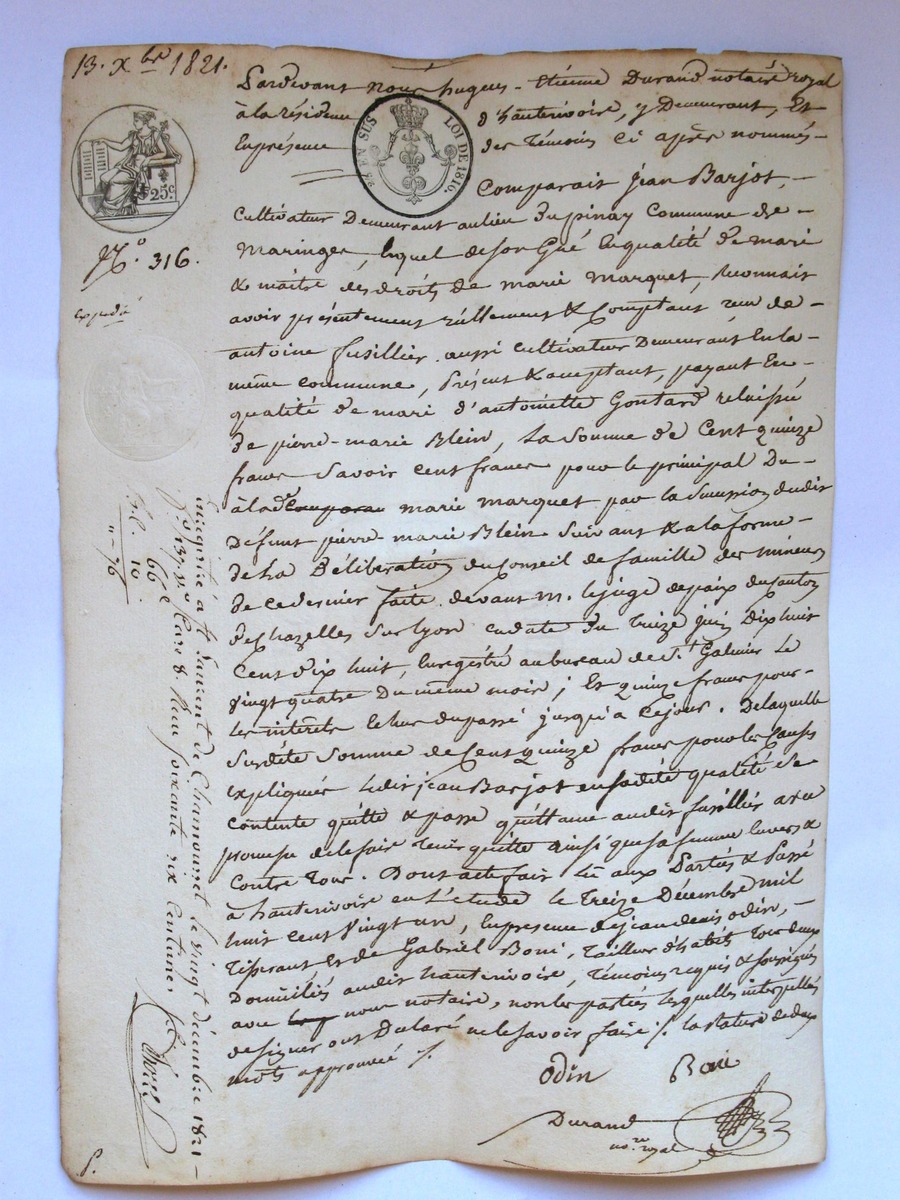 13. Xbre 1821.
Pardevant Nous hugues - étienne Durand notaire royal
à la résidence d'hauterivoire, y Demeurant, Et
En présence des Témoins ci après nommés -
2/10 EN SUS LOI DE 1816.
25c
Comparait jean Barjot, -
Cultivateur Demeurant au lieu Dupinay Commune de -
Maringes, lequel de son Gré En qualité de mari
N.o 316.
& maitre des droits de marie marquet, reconnait
expédié
avoir présentement réellement & Comptant reçu de -
antoine fusillier aussi Cultivateur Demeurant En la -
même Commune, Présent & acceptant, payant En
qualité de mari d'antoinette Gontard relaissée
de pierre-marie Blein, La Somme de Cent quinze
francs Savoir Cent francs pour le principal Du -
à lad. marie marquet par la Succession dudit
Défunt pierre-marie Blein Suivant & a la forme -
de La Délibération du Conseil de famille des mineurs
de ce dernier faite devant m. le juge de paix du Canton
de Chazelles Sur Lyon en date du Treize juin Dix huit
Cent Dix huit, Enregistré au bureau de St. Galmier Le
vingt quatre Du même mois ; Et quinze francs pour -
les intérêts Echus du passé jusqu'à Cejour. De laquelle
Susdite Somme de Cent quinze francs pour les Causes
expliquées Ledit jean Barjot en sadite qualité Se
Contente quitte & passe quittance audit fusillier avec
promesse de le faire tenir quitte ainsi que sa femme Envers &
Contre Tous. Dont acte fait Lu aux Parties & Passé
à hauterivoire en L'etude le Treize Décembre mil
huit Cent vingt un, En présence de jean denis odin, -
Tisserant & de Gabriel Boni, Tailleur d'habits Tous deux
Domiciliés audit hauterivoire, Témoins requis & soussignés
avec nous notaire, non les parties lesquelles interpellées
de signer ont Déclaré ne le Savoir faire ./. la rature de deux
mots approuvée ./.
Odin Boni
Durand
no.re royal
Enregistré à St Laurent de Chamousset le vingt décembre 1821 -
f.o 137 v.o Case 8. Reçu soixante six Centimes
66c
10
" 76